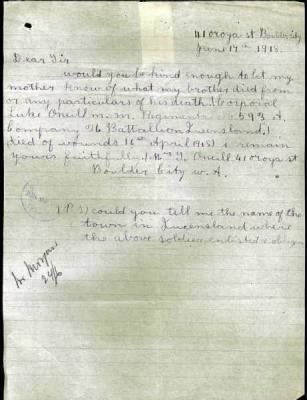 41 Oroya st Boulder City
June 17th 1918.
Dear Sir
would you be kind enough to let my
mother know of what my brother died from
or any particulars of his death (Corporial
Luke Oneill m.m. Regimental 593 A
Company 26 Battallion Queensland,)
died of wounds 16th April 1918) i remain
yours faithfully J. Oneill 41 oroya st
Boulder City w.A.
(P.S) could you tell me the name of the
town in Queensland where
the above soldier enlisted
Mr
24/6